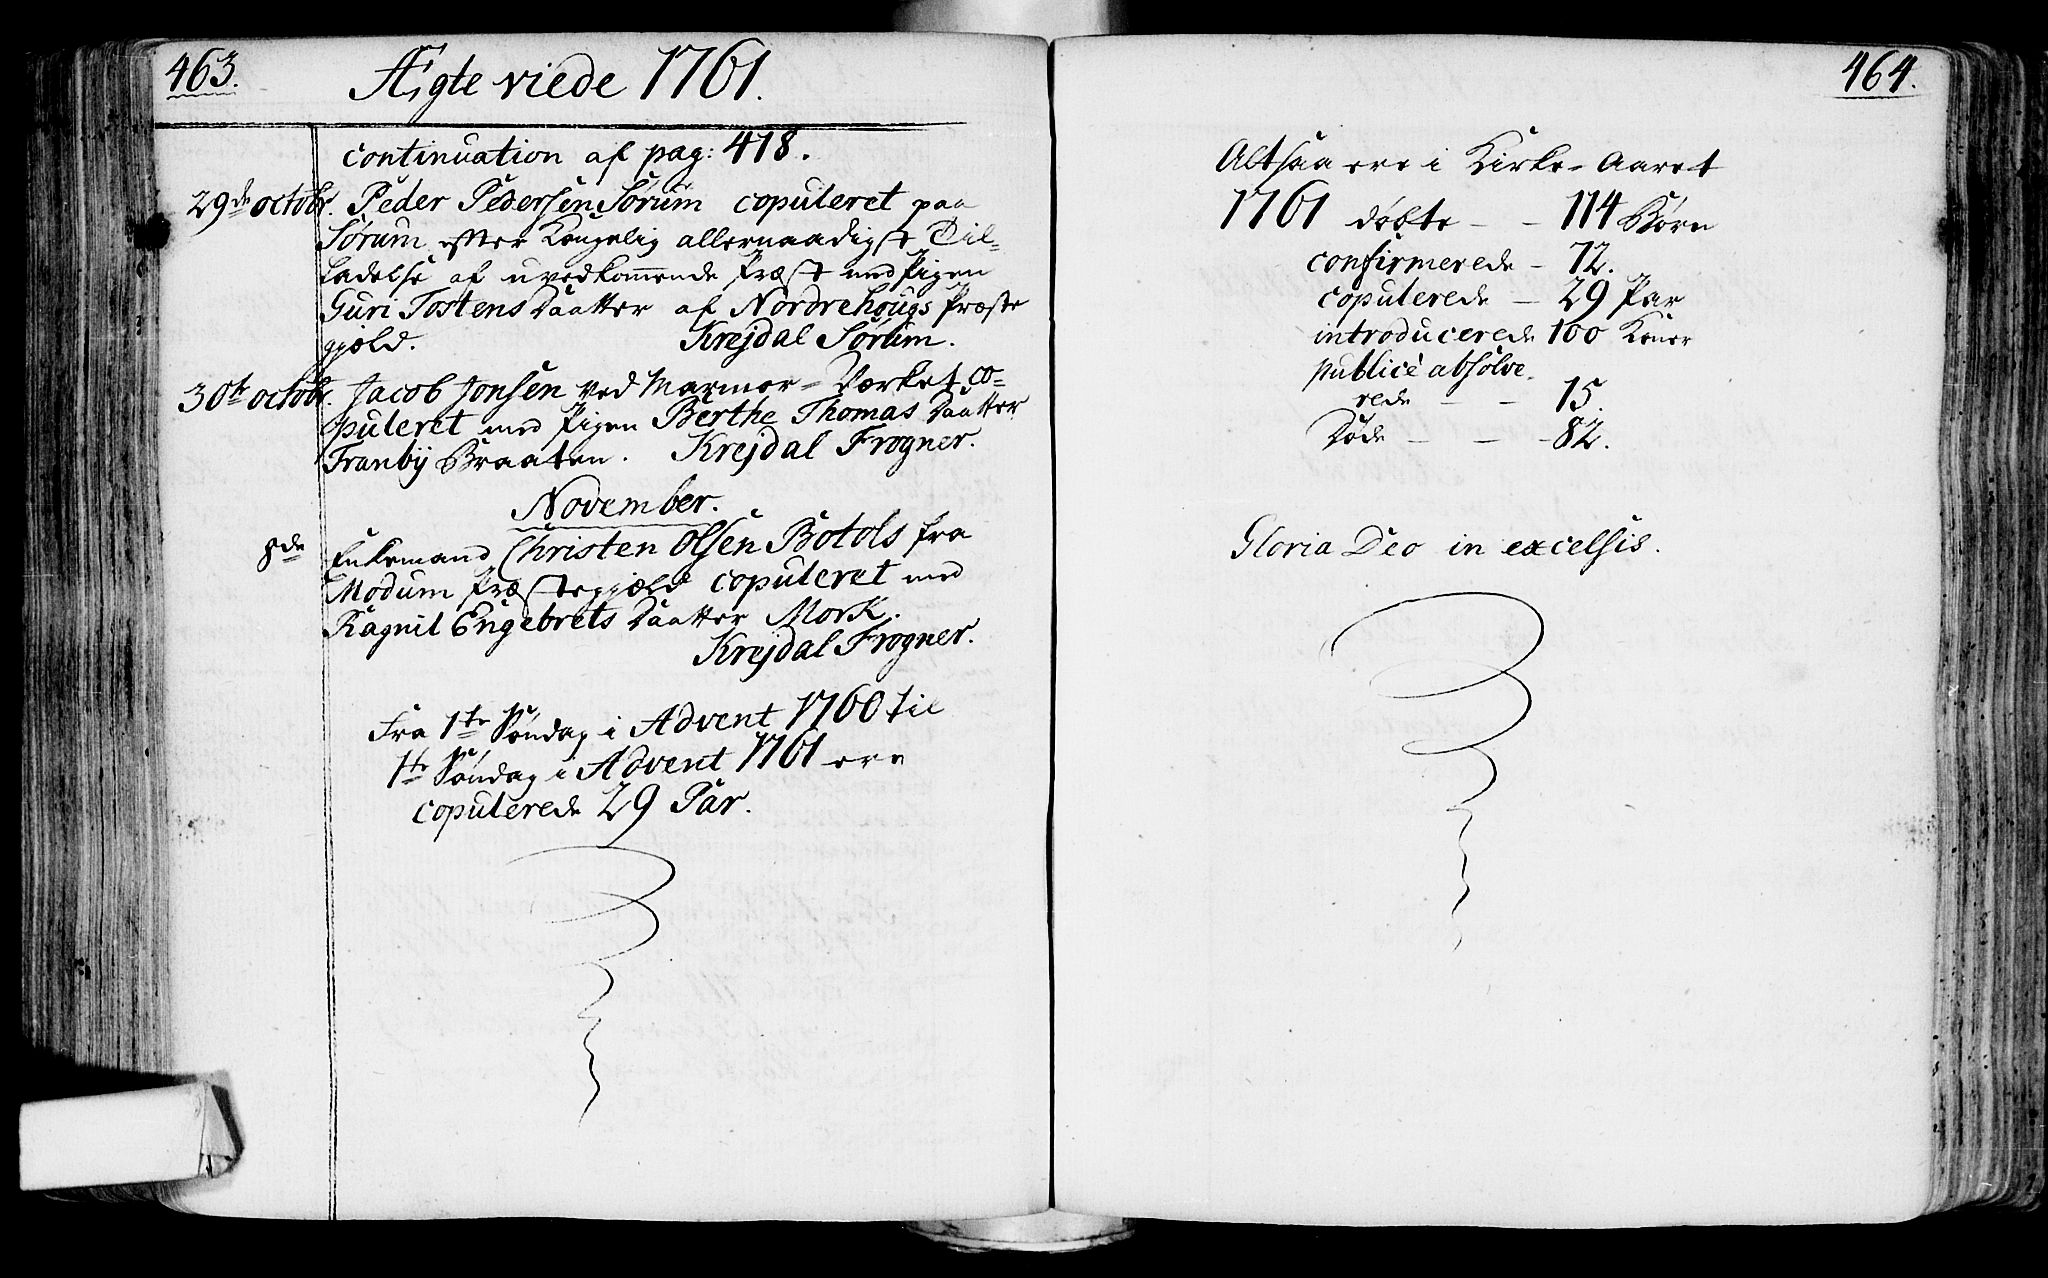 463.
Ægte viede 1761.
continuation af pag: 418.
29de octobr. Peder Pedersen Sørum copuleret paa
Sørum efter Kongelig allernaadigst Til-
ladelse af uvedkom̄ende Præst med Pigen
Guri Tostens Daatter af Nordrehougs Præste
gjeld. Krejdal Sørum.
30te octobr. Jacob Jonsen ved Marmor-Værket co-
puleret med Pigen Berthe Thomas Daatter
Tranbÿ Braaten. Krejdal Frogner.
November.
8de Enkemand Christen Olsen Botols fra
Modum Præstegjæld copuleret med
Ragnil Engebrets Daatter Mork.
Krejdal Frogner.
Fra 1te Søndag i Advent 1760 til
1te Søndag i Advent 1761 ere
copulerede 29 Par.
464.
Altsaa ere i Kirke-Aaret
1761 døbte - - 114 Børn
confirmerede - 72.
copulerede - 29 Par
introducerede 100 Koner
publicè absolve-
rede - - 15.
Døde - - - 82.
Gloria Deo in excelsis.